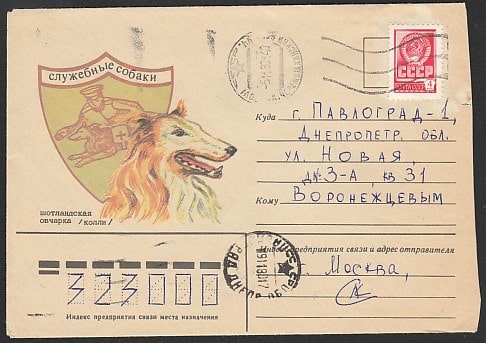 СЛУЖЕБНЫЕ СОБАКИ
ШОТЛАНДСКАЯ
ОВЧАРКА /КОЛЛИ/
СССР
4
Куда г. Павлоград-1,
Днепропетр. обл.
ул. Новая,
д№ 3-А, кв 31
Кому Воронежцевым
Индекс предприятия связи и адрес отправителя
г. Москва,
323000
Индекс предприятия связи места назначения